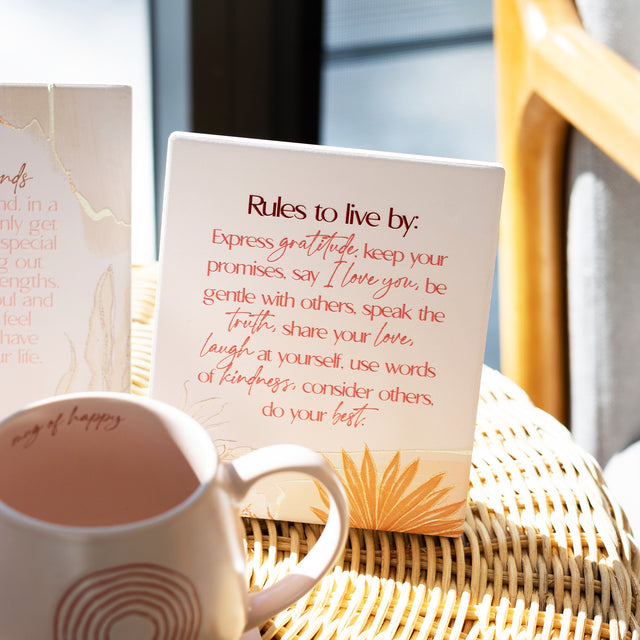 nds
nd, in a
nly get
special
g out
engths,
oul and
feel
have
ur life.
Rules to live by:
Express gratitude, keep your
promises, say I love you, be
gentle with others, speak the
truth, share your love,
laugh at yourself, use words
of kindness, consider others,
do your best.
mug of happy